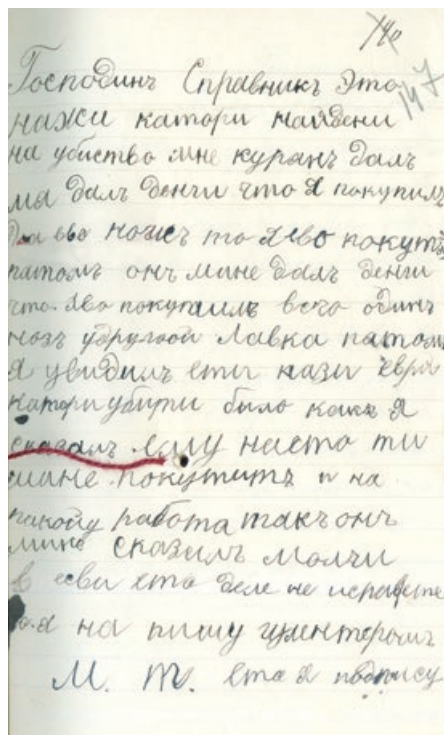 147
Господинъ Справникъ Это
нажи катори найдени
на убиство мне куранъ далъ
ма далъ денги что я покупилъ
ево ножъ то я ево покутъ
патомъ онъ мине далъ денги
что ево покупаилъ всего одинъ
нозъ удругой Лавка патомъ
Я увидилъ ети нази
катори убити било какъ я
сказалъ ему насто ти
мине покутитъ и на
какойу работа такъ онъ
мине сказилъ молчи
ета деле не
я на пишу
М. Т. ета я подпису